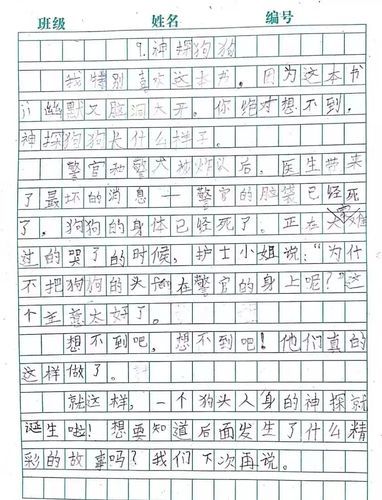 班级 姓名 编号
9.神探狗狗
我特别喜欢这本书。因为这本书
幽默又脑洞大开。你绝对想不到，
神探狗狗长什么样子。
警官和警犬被炸以后，医生带来
了最坏的消息一警官的脑袋已经死
了，狗狗的身体已经死了。正在大家难
过的哭了的时候，护士小姐说：“为什
不把狗狗的头在警官的身上呢？”这
个主意太好了。
想不到吧，想不到吧！他们真的
这样做了。
就这样，一个狗头人身的神探就
诞生啦！想要知道后面发生了什么精
彩的故事吗？我们下次再说。